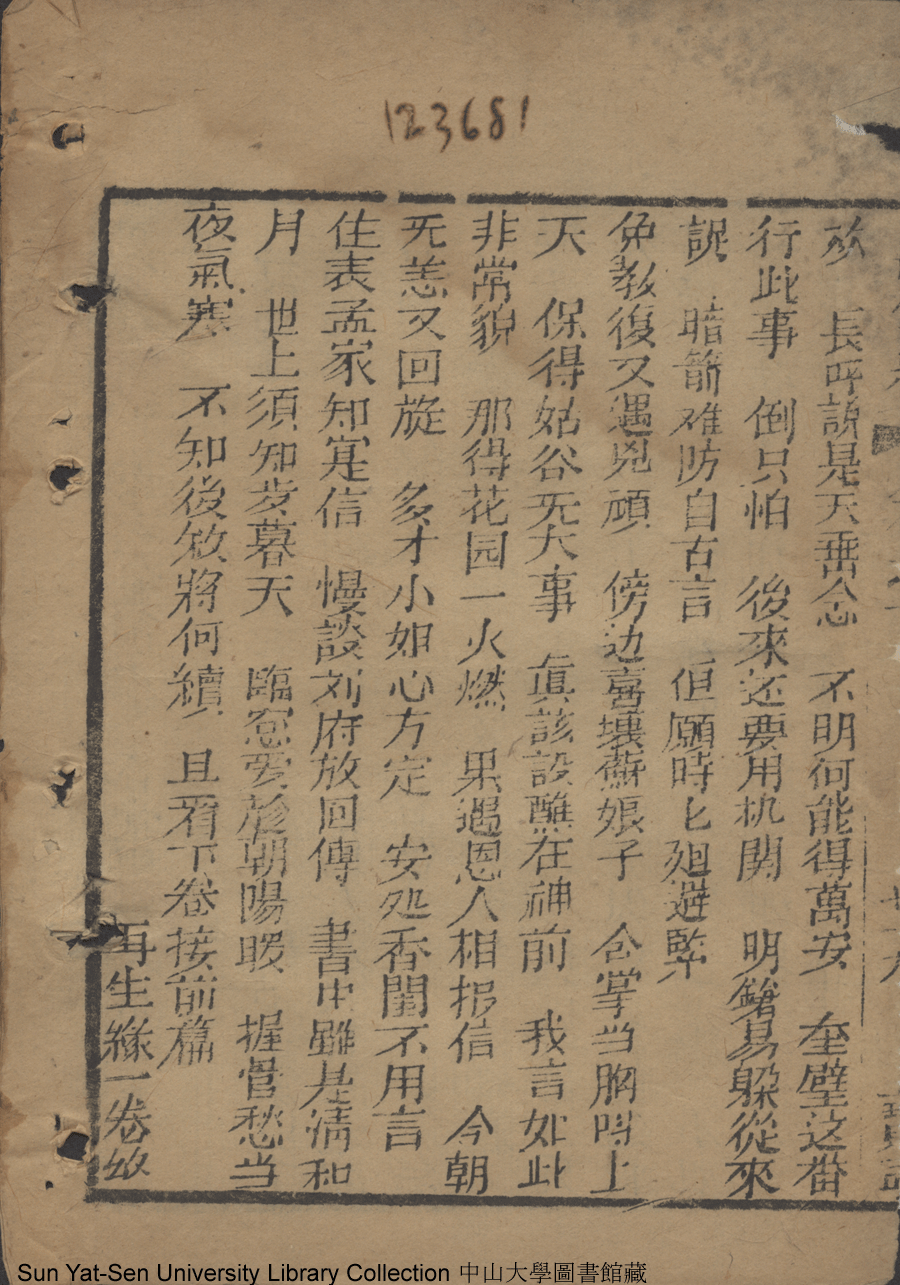 123681
放 長呼說是天垂念 不明何能得萬安 奎璧这番
行此事 倒只怕 後來还要用机関 明鎗易躲從來
説 暗箭难防自古言 但愿時匕廻避緊
免教復又遇兇頑 傍边喜壞蘇娘子 合掌当胸呌上
天 保得姑爷无大事 真該設醮在神前 我言如此
非常貌 那得花园一火燃 果遇恩人相报信 今朝
无恙又回旋 多才小姐心方定 安处香閨不用言
住表孟家知寔信 慢談刘府放回傳 書中雖是清和
月 世上須知歩暮天 臨窓愛趁朝陽暖 握管愁当
夜氣寒 不知後敘將何續 且看下卷接前篇
再生緣一卷終
Sun Yat-Sen University Library Collection 中山大學圖書館藏